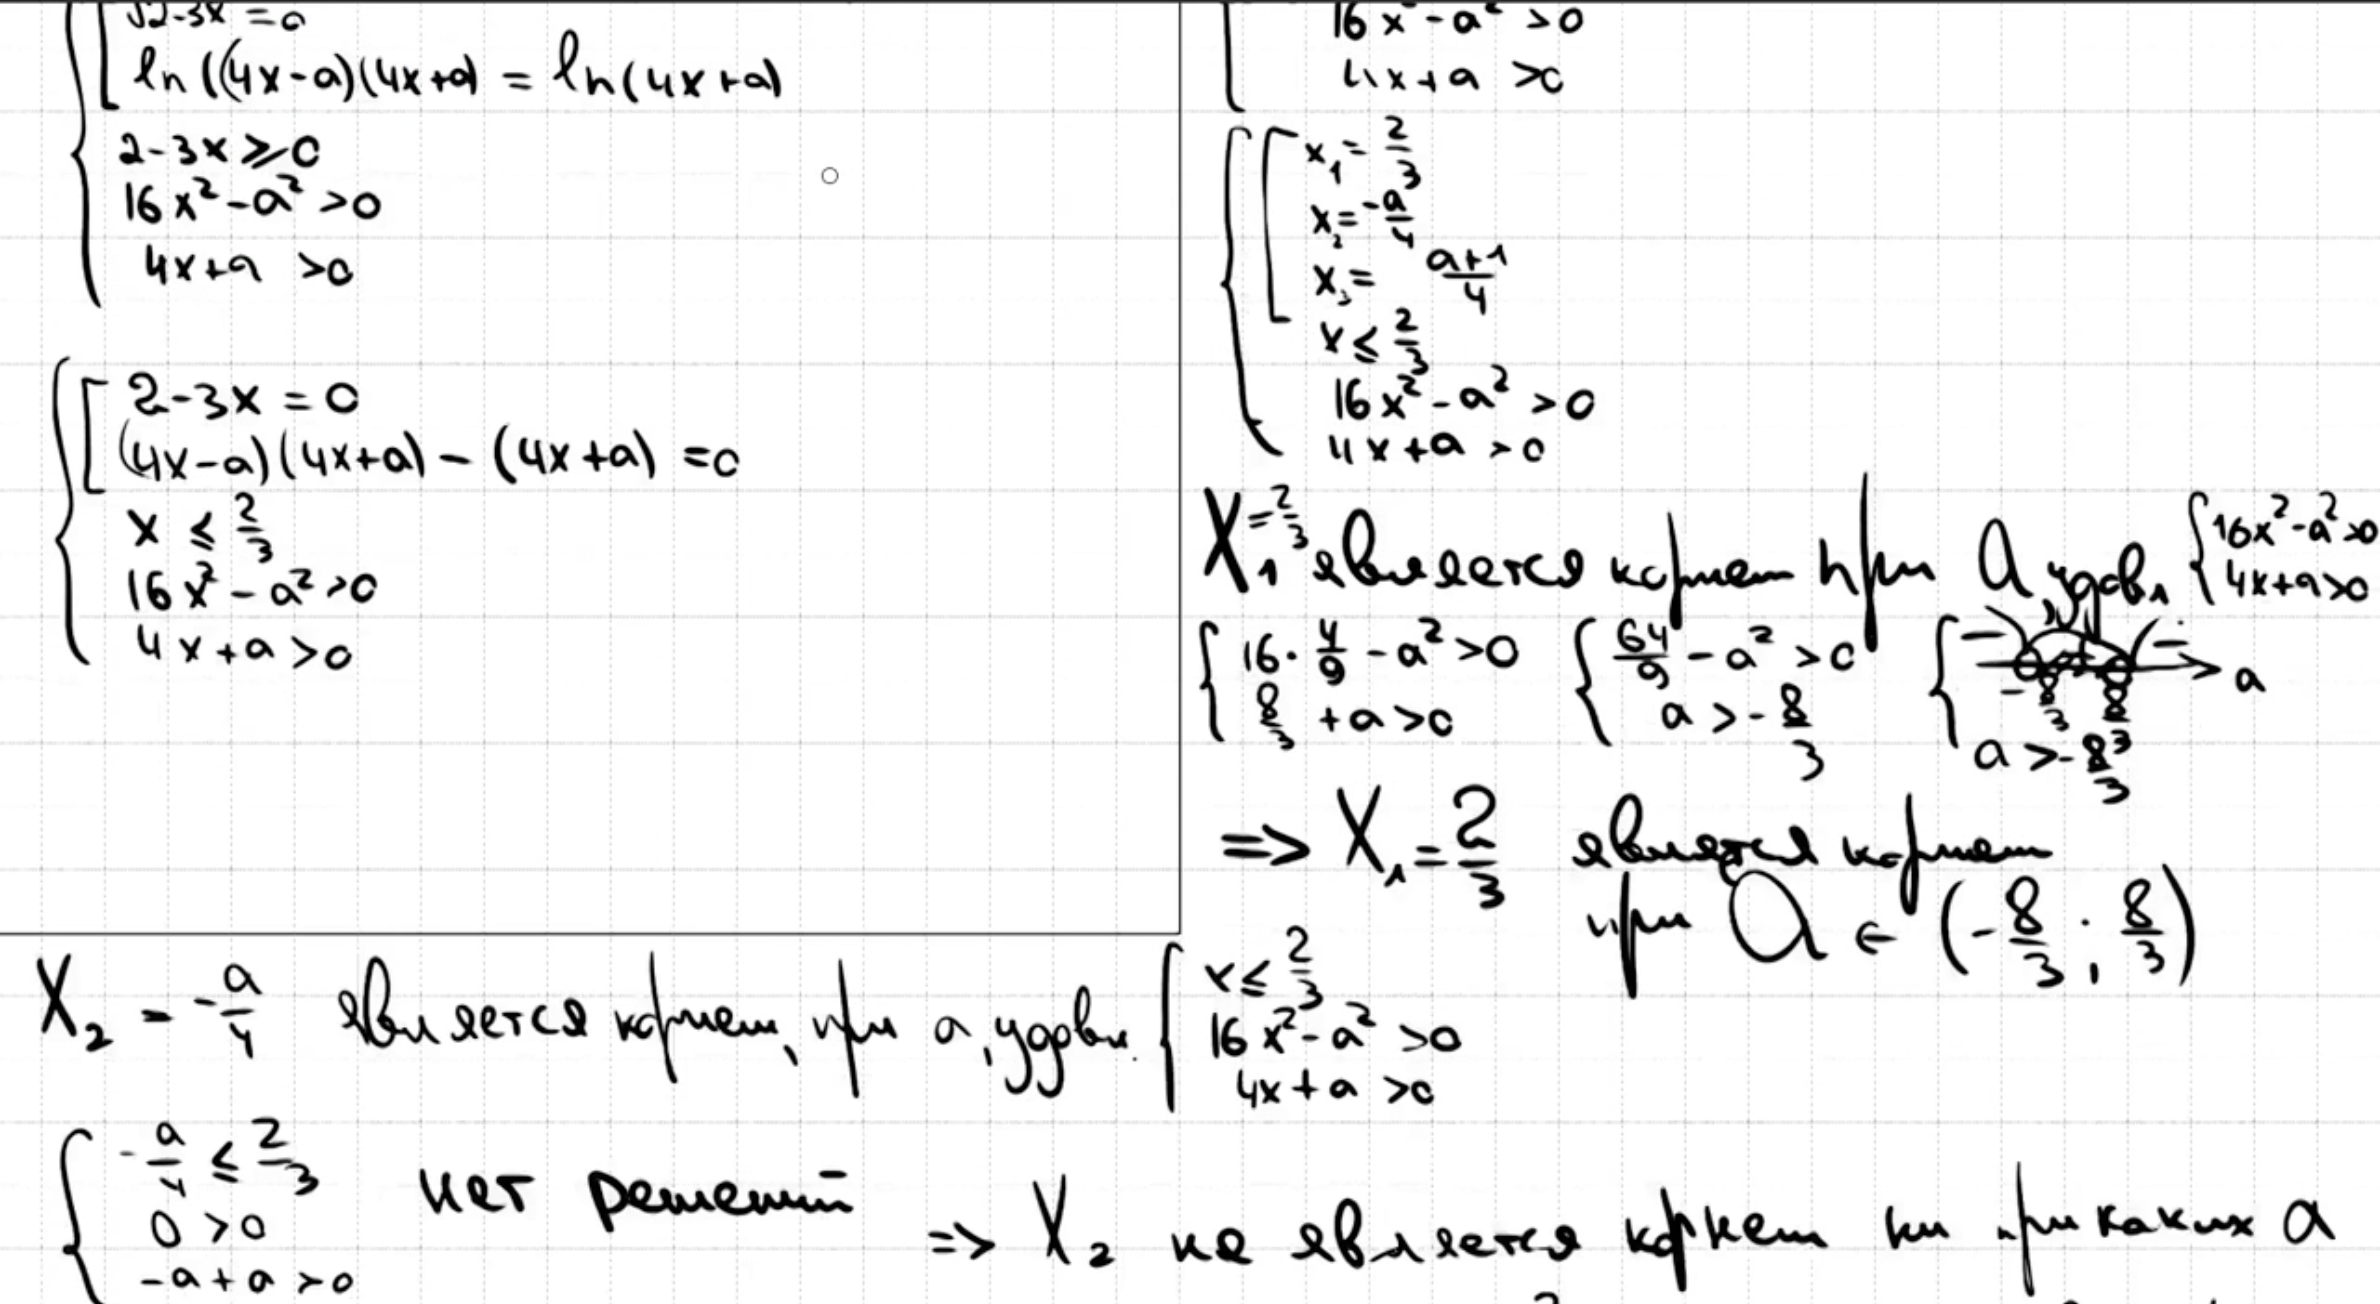 √2-3x = 0
ln((4x-a)(4x+a) = ln(4x+a)
2-3x ⩾ 0
16x² - a² > 0
4x+a > 0
2-3x = 0
(4x-a)(4x+a) - (4x+a) = 0
x ≤ 2/3
16x² - a² > 0
4x+a > 0
16x² - a² > 0
4x+a > 0
x₁ = 2/3
x₂ = -a/4
x₃ = a+1/4
x ≤ 2/3
16x² - a² > 0
4x+a > 0
X₁ = 2/3 является корнем при a, удовл. { 16x² - a² > 0
4x+a > 0
{ 16 · 4/9 - a² > 0 { 64/9 - a² > 0 { - + - -8/3 8/3 a
8/3 + a > 0 a > -8/3 a > -8/3
=> X₁ = 2/3 является корнем
при a ∈ (-8/3; 8/3)
X₂ = -a/4 является корнем, при a, удовл. { x ≤ 2/3
16x² - a² > 0
4x+a > 0
{ -a/4 ≤ 2/3
0 > 0
-a + a > 0
нет решений => X₂ не является корнем ни при каких a